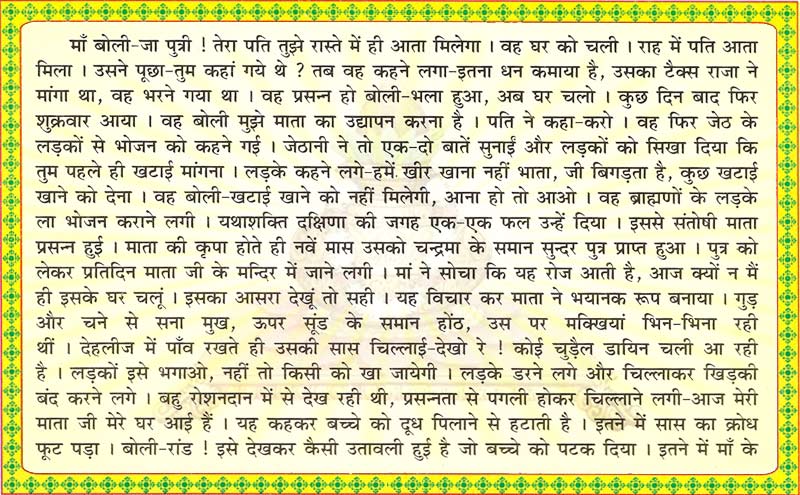 माँ बोली-जा पुत्री ! तेरा पति तुझे रास्ते में ही आता मिलेगा । वह घर को चली । राह में पति आता
मिला । उसने पूछा-तुम कहां गये थे ? तब वह कहने लगा-इतना धन कमाया है, उसका टैक्स राजा ने
मांगा था, वह भरने गया था । वह प्रसन्न हो बोली-भला हुआ, अब घर चलो । कुछ दिन बाद फिर
शुक्रवार आया । वह बोली मुझे माता का उद्यापन करना है । पति ने कहा-करो । वह फिर जेठ के
लड़कों से भोजन को कहने गई । जेठानी ने तो एक-दो बातें सुनाईं और लड़कों को सिखा दिया कि
तुम पहले ही खटाई मांगना । लड़के कहने लगे-हमें खीर खाना नहीं भाता, जी बिगड़ता है, कुछ खटाई
खाने को देना । वह बोली-खटाई खाने को नहीं मिलेगी, आना हो तो आओ । वह ब्राह्मणों के लड़के
ला भोजन कराने लगी । यथाशक्ति दक्षिणा की जगह एक-एक फल उन्हें दिया । इससे संतोषी माता
प्रसन्न हुई । माता की कृपा होते ही नवें मास उसको चन्द्रमा के समान सुन्दर पुत्र प्राप्त हुआ । पुत्र को
लेकर प्रतिदिन माता जी के मन्दिर में जाने लगी । मां ने सोचा कि यह रोज आती है, आज क्यों न मैं
ही इसके घर चलूं । इसका आसरा देखूं तो सही । यह विचार कर माता ने भयानक रूप बनाया । गुड़
और चने से सना मुख, ऊपर सूंड के समान होंठ, उस पर मक्खियां भिन-भिना रही
थीं । देहलीज में पाँव रखते ही उसकी सास चिल्लाई-देखो रे ! कोई चुड़ैल डायिन चली आ रही
है । लड़कों इसे भगाओ, नहीं तो किसी को खा जायेगी । लड़के डरने लगे और चिल्लाकर खिड़की
बंद करने लगे । बहु रोशनदान में से देख रही थी, प्रसन्नता से पगली होकर चिल्लाने लगी-आज मेरी
माता जी मेरे घर आई हैं । यह कहकर बच्चे को दूध पिलाने से हटाती है । इतने में सास का क्रोध
फूट पड़ा । बोली-रांड ! इसे देखकर कैसी उतावली हुई है जो बच्चे को पटक दिया । इतने में माँ के